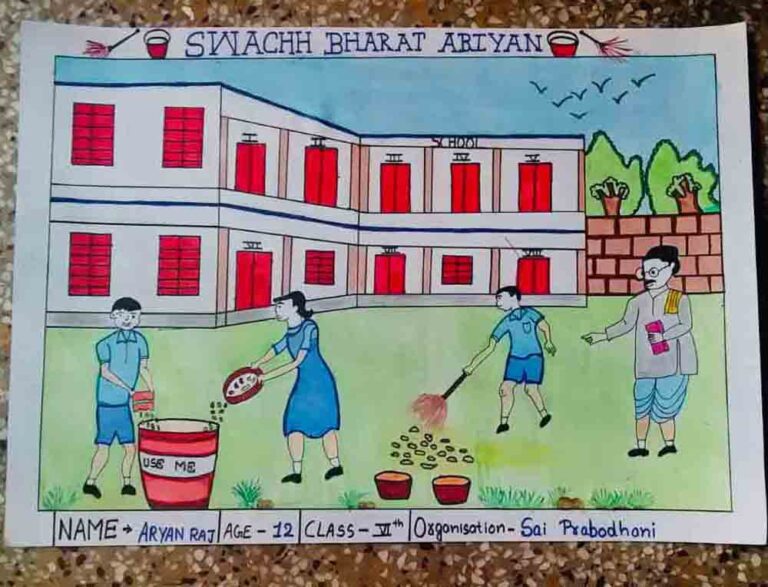 SWACHH BHARAT ABIYAN
SCHOOL
I II III IV V
VI VII VIII
USE ME
NAME → ARYAN RAJ AGE - 12 CLASS - VIth Organisation - Sai Prabodhani